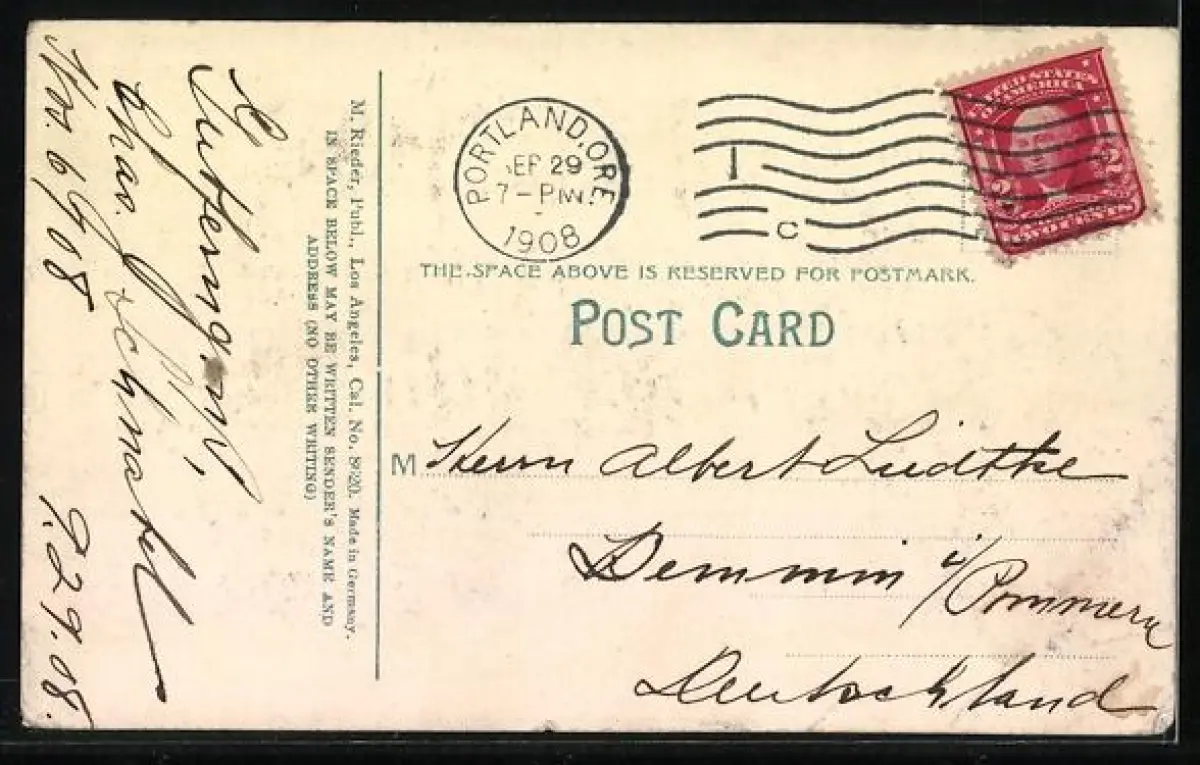 Chas. Schmakel
No. 6408
9.29.08.
M. Rieder, Publ., Los Angeles, Cal. No. 8920. Made in Germany.
IN SPACE BELOW MAY BE WRITTEN SENDER'S NAME AND
ADDRESS (NO OTHER WRITING)
PORTLAND, ORE.
SEP 29
7-PM
1908
1
C
UNITED STATES
OF AMERICA
2 2
TWO CENTS
THE SPACE ABOVE IS RESERVED FOR POSTMARK.
POST CARD
M Herrn Albert Lüdtke
Demmin i/Pommern
Deutschland